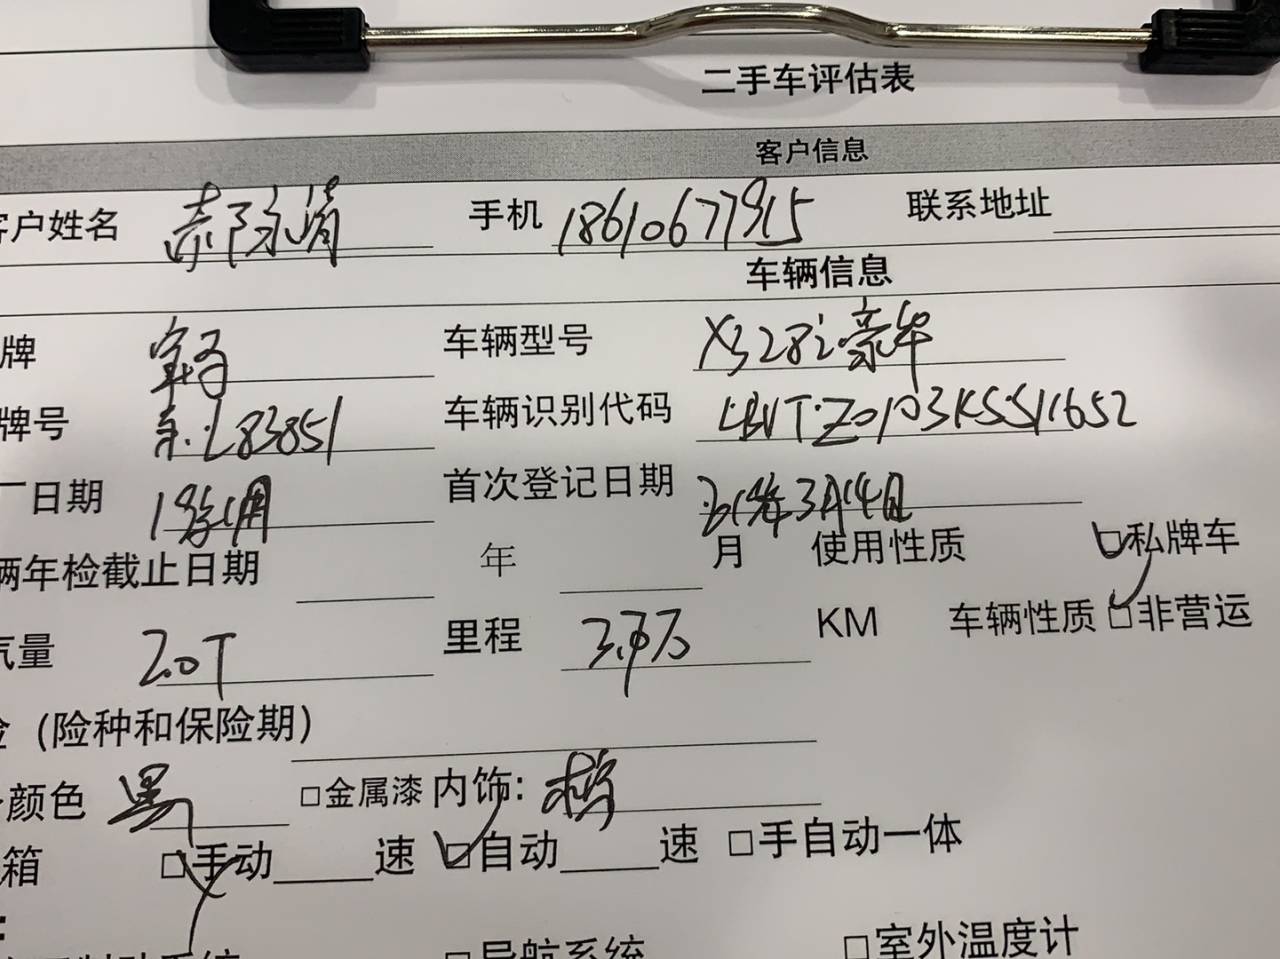 二手车评估表
客户信息
客户姓名 郝永清 手机 18610677915 联系地址
车辆信息
牌 宝马 车辆型号 X3 28i 豪华
牌号 京·L83851 车辆识别代码
日期 首次登记日期 3月14日
辆年检截止日期 年 月 使用性质 □私牌车
气量 2.0T 里程 KM 车辆性质 □非营运
(险种和保险期)
颜色 黑 □金属漆 内饰: 棕
箱 □手动 速 □自动 速 □手自动一体
:
□导航系统 □室外温度计